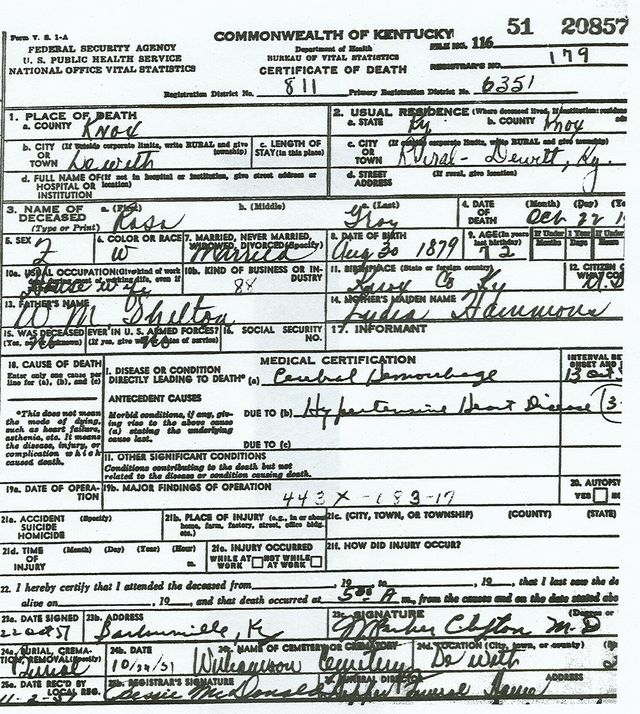 Form V. S. 1-A
COMMONWEALTH OF KENTUCKY
51 20857
FEDERAL SECURITY AGENCY
Department of Health
FILE NO. 116
U. S. PUBLIC HEALTH SERVICE
BUREAU OF VITAL STATISTICS
REGISTRAR'S NO. 179
NATIONAL OFFICE VITAL STATISTICS
CERTIFICATE OF DEATH
Registration District No. 811 Primary Registration District No. 6351
1. PLACE OF DEATH
2. USUAL RESIDENCE (Where deceased lived, if institution: residence
a. COUNTY Knox
a. STATE Ky b. COUNTY Knox
b. CITY (If outside corporate limits, write RURAL and give township) OR TOWN Dewitt
c. LENGTH OF STAY (in this place)
c. CITY (If outside corporate limits, write RURAL and give township) OR TOWN Rural - Dewitt, Ky.
d. FULL NAME OF (If not in hospital or institution, give street address or location) HOSPITAL OR INSTITUTION
d. STREET ADDRESS (If rural, give location)
3. NAME OF DECEASED (Type or Print) a. (First) Rosa b. (Middle) c. (Last) Gray
4. DATE OF DEATH (Month) (Day) (Y Oct 22 1
5. SEX F
6. COLOR OR RACE W
7. MARRIED, NEVER MARRIED, WIDOWED, DIVORCED (Specify) Married
8. DATE OF BIRTH Aug 30 1879
9. AGE (In years last birthday) 72 If Under 1 Year If Und Months Days Hours
10a. USUAL OCCUPATION (Give kind of work of working life, even if House Wife
10b. KIND OF BUSINESS OR INDUSTRY 88
11. BIRTHPLACE (State or foreign country) Knox Co Ky
12. CITIZEN O WHAT CO
13. FATHER'S NAME W M Shelton
14. MOTHER'S MAIDEN NAME Hammons
15. WAS DECEASED EVER IN U. S. ARMED FORCES? (Yes, no, or unknown) (If yes, give war or dates of service) No
16. SOCIAL SECURITY NO.
17. INFORMANT
18. CAUSE OF DEATH
MEDICAL CERTIFICATION
INTERVAL BE ONSET AND
Enter only one cause per line for (a), (b), and (c)
I. DISEASE OR CONDITION DIRECTLY LEADING TO DEATH* (a) Cerebral Hemorrhage 13 Oct
*This does not mean the mode of dying, such as heart failure, asthenia, etc. It means the disease, injury, or complication which caused death.
ANTECEDENT CAUSES
Morbid conditions, if any, giving rise to the above cause (a) stating the underlying cause last.
DUE TO (b) Hypertensive Heart Disease (3-
DUE TO (c)
II. OTHER SIGNIFICANT CONDITIONS
Conditions contributing to the death but not related to the disease or condition causing death.
19a. DATE OF OPERATION
19b. MAJOR FINDINGS OF OPERATION
443X-183-17
20. AUTOPSY YES N
21a. ACCIDENT SUICIDE HOMICIDE (Specify)
21b. PLACE OF INJURY (e.g., in or about home, farm, factory, street, office bldg. etc.)
21c. (CITY, TOWN, OR TOWNSHIP) (COUNTY) (STATE)
21d. TIME OF INJURY (Month) (Day) (Year) (Hour) m.
21e. INJURY OCCURRED WHILE AT WORK NOT WHILE AT WORK
21f. HOW DID INJURY OCCUR?
22. I hereby certify that I attended the deceased from , 19 to , 19 , that I last saw the de
alive on , 19 , and that death occurred at 5:00 A m., from the causes and on the date stated abo
23a. DATE SIGNED 22 Oct 51
23b. ADDRESS Barbourville, Ky
23c. SIGNATURE Clifton M.D (Degree or
24a. BURIAL, CREMATION, REMOVAL (Specify) Burial
24b. DATE 10/24/51
24c. NAME OF CEMETERY OR CREMATORY Williamson Cemetery
24d. LOCATION (City, town, or county) De witt
25a. DATE REC'D BY LOCAL REG. 11-2-51
25b. REGISTRAR'S SIGNATURE Bessie McDonald
FUNERAL DIRECTOR Hopper Funeral Home ADDRESS